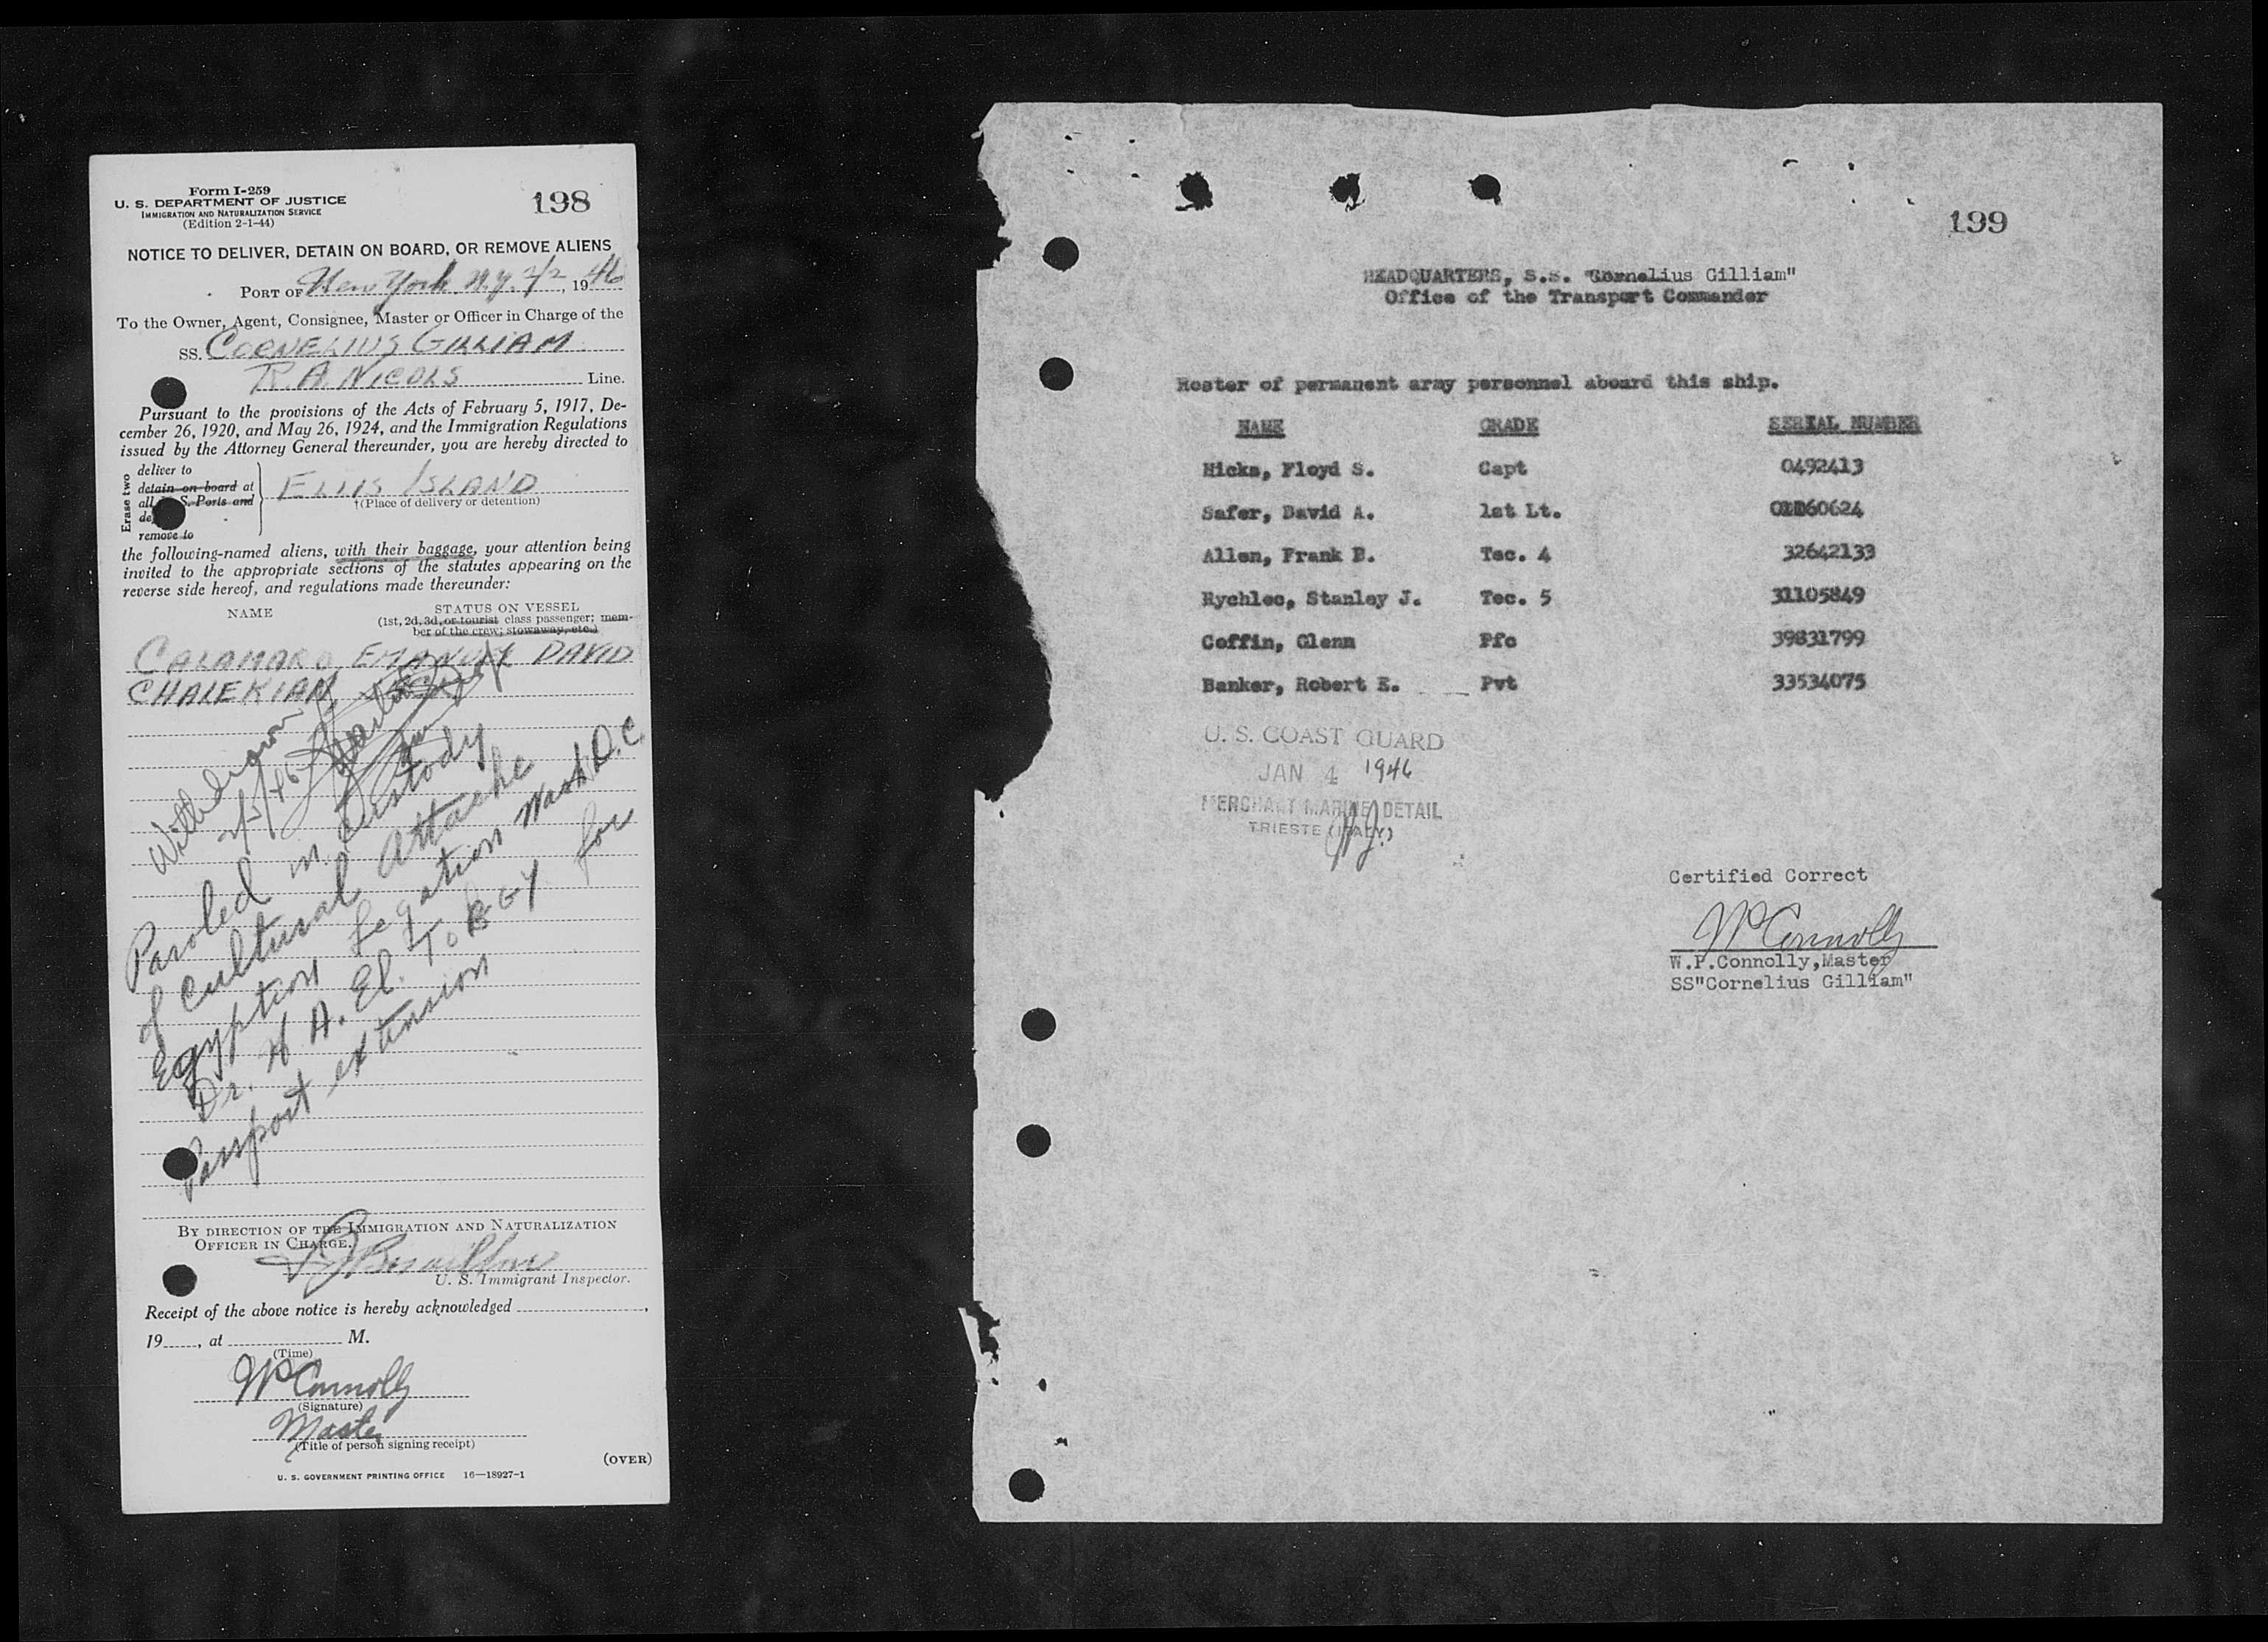 Form I-259
U. S. DEPARTMENT OF JUSTICE
IMMIGRATION AND NATURALIZATION SERVICE
(Edition 2-1-44)
198
NOTICE TO DELIVER, DETAIN ON BOARD, OR REMOVE ALIENS
PORT OF New York N.Y. 2/2, 1946
To the Owner, Agent, Consignee, Master or Officer in Charge of the
SS. CORNELIUS GILLIAM
R.A. NICOLS Line.
Pursuant to the provisions of the Acts of February 5, 1917, De-
cember 26, 1920, and May 26, 1924, and the Immigration Regulations
issued by the Attorney General thereunder, you are hereby directed to
Erase two
deliver to
detain on board at
all S. Ports and
remove to
ELLIS ISLAND
†(Place of delivery or detention)
the following-named aliens, with their baggage, your attention being
invited to the appropriate sections of the statutes appearing on the
reverse side hereof, and regulations made thereunder:
NAME
STATUS ON VESSEL
(1st, 2d, 3d, or tourist class passenger; mem-
ber of the crew; stowaway, etc.)
CALAMARO, EMANUEL DAVID
CHALEKIAN
Withdrawn
2/5/46
Paroled in custody
of Cultural Attache
Egyption Legation Wash D.C.
Dr. H A. El. ToBGY for
Passport extension
BY DIRECTION OF THE IMMIGRATION AND NATURALIZATION
OFFICER IN CHARGE.
U. S. Immigrant Inspector.
Receipt of the above notice is hereby acknowledged
19, at M.
(Time)
WPConnolly
(Signature)
Master
(Title of person signing receipt)
(OVER)
U. S. GOVERNMENT PRINTING OFFICE 16—18927-1
199
HEADQUARTERS, S.S. "Cornelius Gilliam"
Office of the Transport Commander
Roster of permanent army personnel aboard this ship.
NAME GRADE SERIAL NUMBER
Hicks, Floyd S. Capt 0492413
Safer, David A. 1st Lt.
Allen, Frank B. Tec. 4 32642133
Rychlec, Stanley J. Tec. 5 31105849
Coffin, Glenn Pfc 39831799
Banker, Robert E. Pvt 33534075
U. S. COAST GUARD
JAN 4 1946
MERCHANT MARINE DETAIL
TRIESTE (ITALY)
Certified Correct
WPConnolly
W.P.Connolly,Master
SS"Cornelius Gilliam"